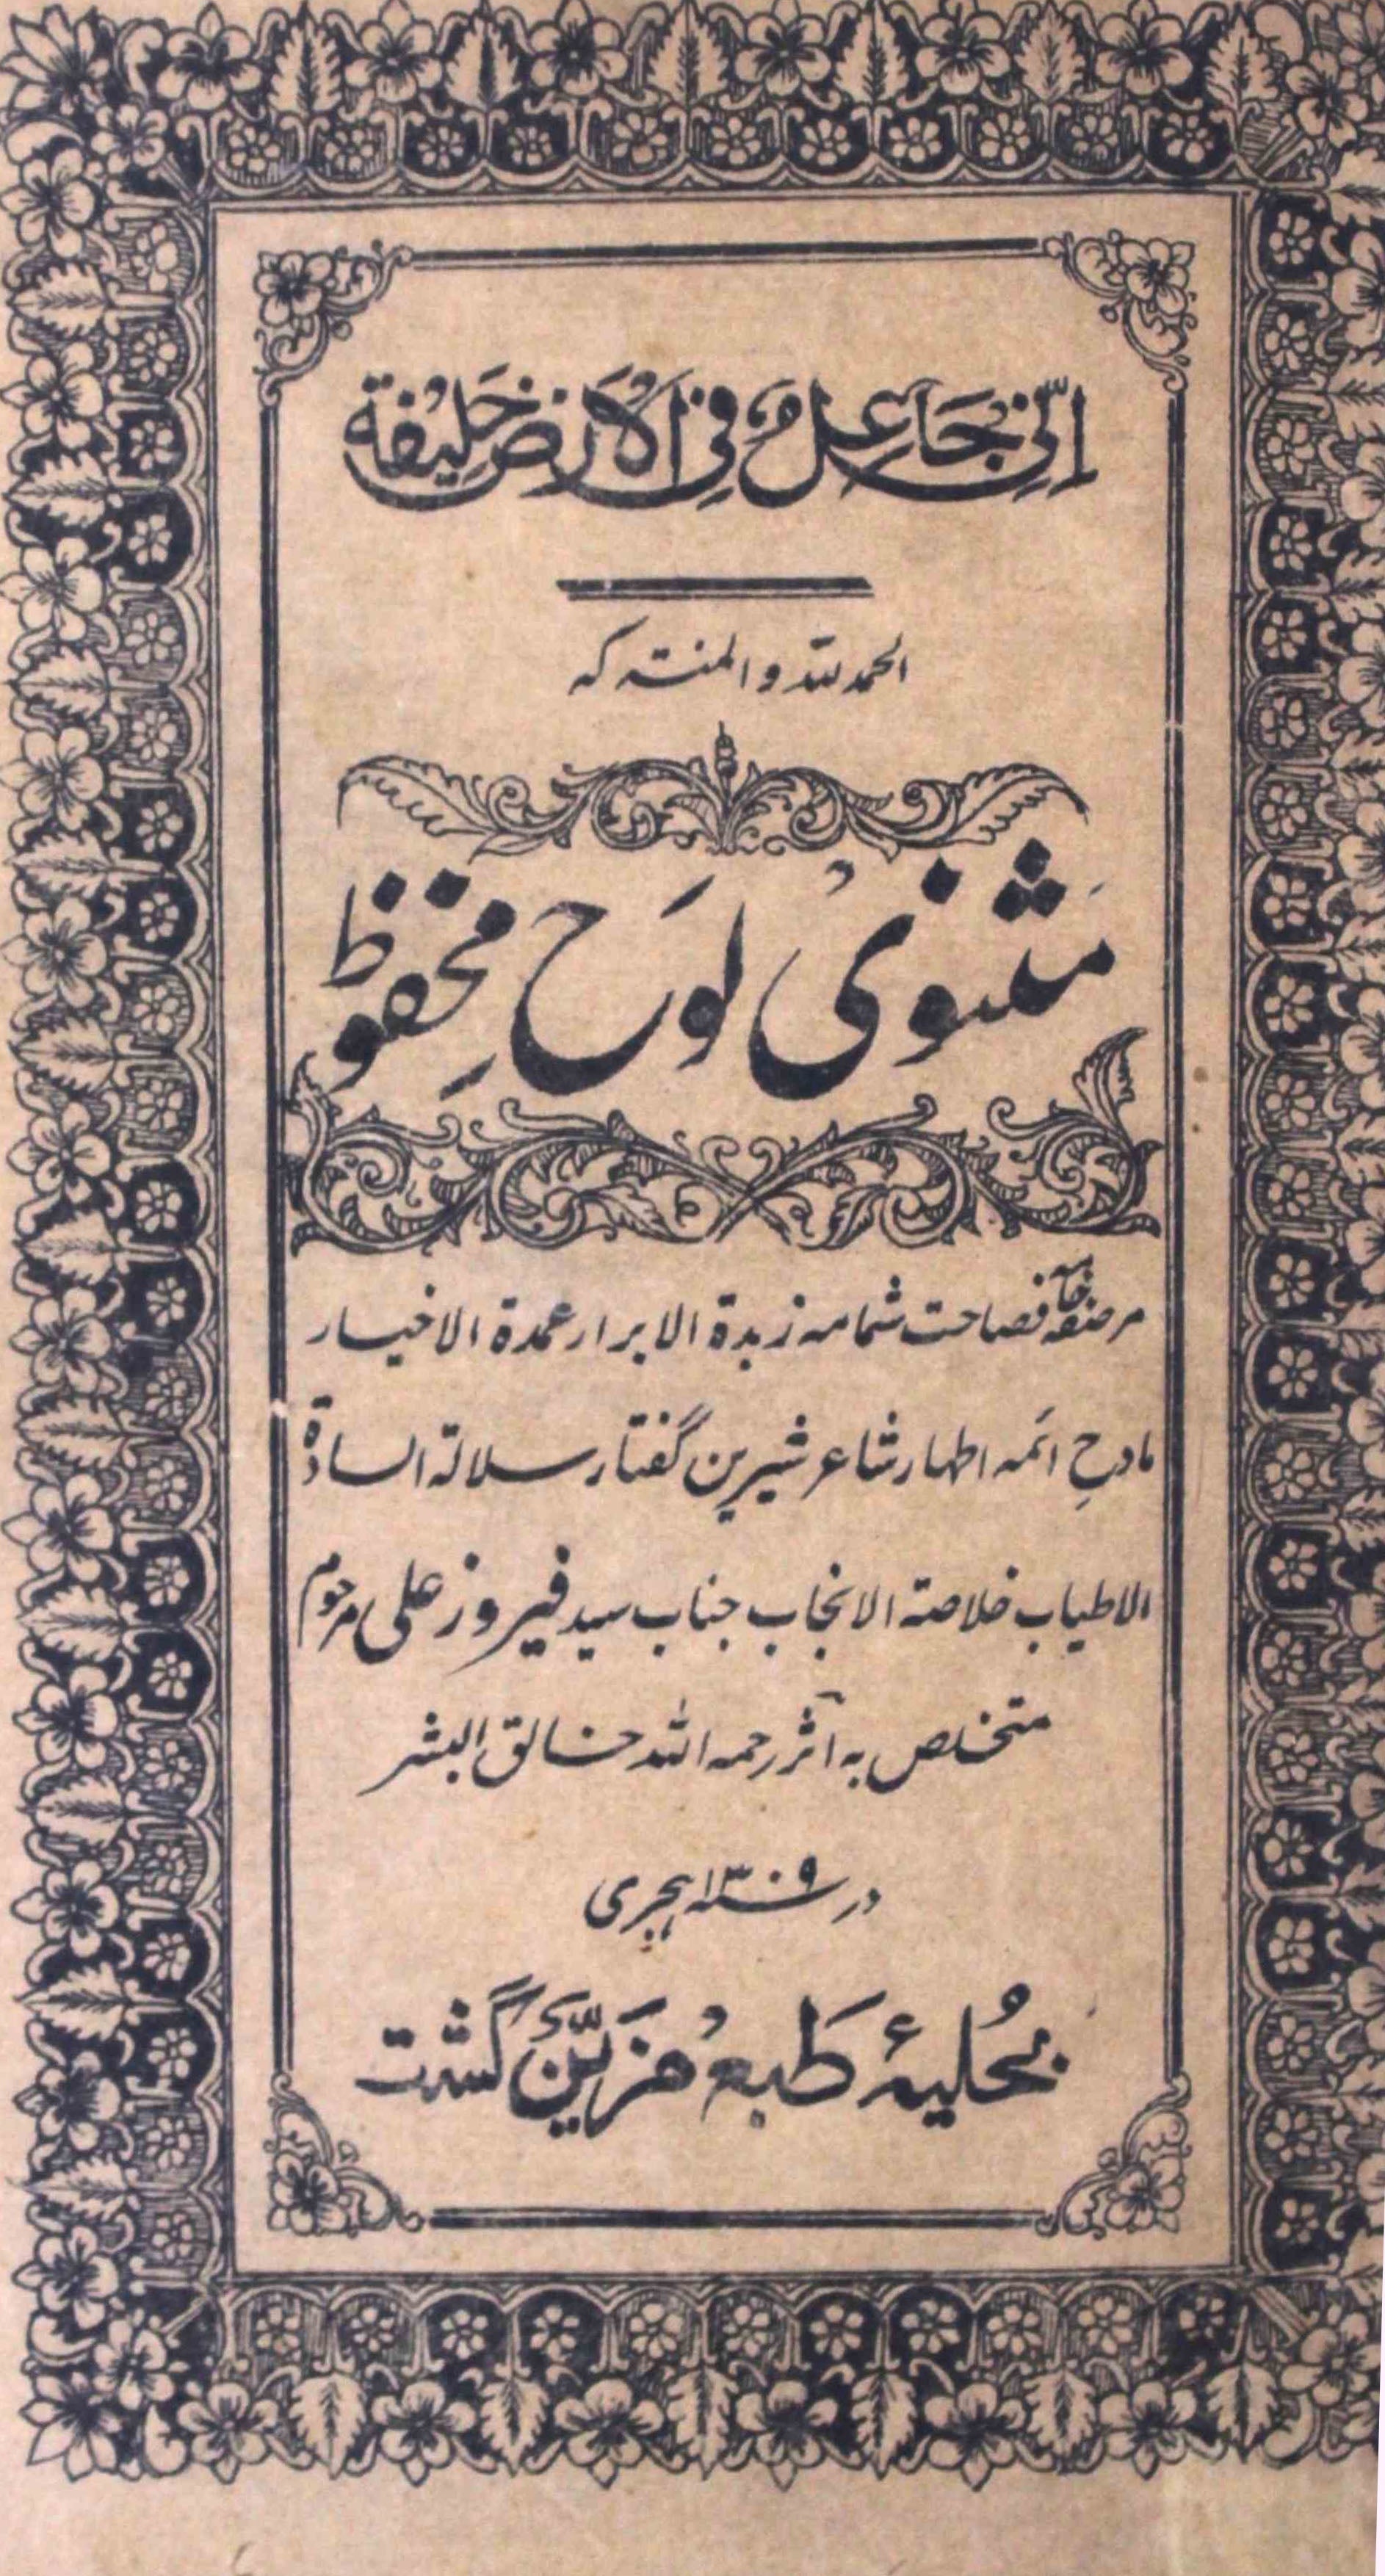 اِنِّیْ جَاعِلٌ فِی الْاَرْضِ خَلِیْفَة
الحمد للہ و المنتہ کہ
مثنوی لوح محفوظ
مرصنفہ خامۂ فصاحت شمامہ زبدة الابرار عمدة الاخیار
مادحِ ائمہ اطہار شاعر شیرین گفتار سلالتہ السادة
الاطیاب خلاصتہ الانجاب جناب سید فیروز علی مرحوم
متخلص بہ آثر رحمہ اللہ خالق البشر
در ۱۳۰۹ سنہ ہجری
بحُلیۂ طبع مزیّن گشت